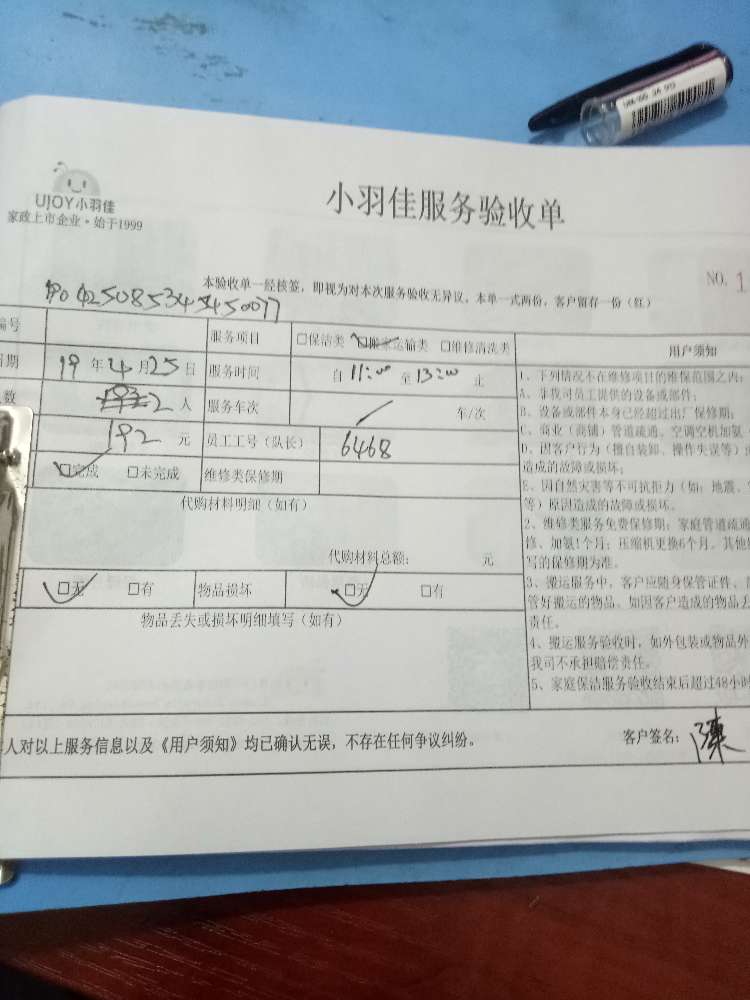 UJOY小羽佳
家政上市企业·始于1999
小羽佳服务验收单
NO. 1
本验收单一经核签，即视为对本次服务验收无异议，本单一式两份，客户留存一份（红）
编号
服务项目 □保洁类 □搬家运输类 □维修清洗类
用户须知
日期 19 年 4 月 25 日 服务时间 自 11:00 至 13:00 止
数 2 人 服务车次 / 车/次
192 元 员工工号（队长） 6468
□完成 □未完成 维修类保修期
代购材料明细（如有）
代购材料总额： 元
□无 □有 物品损坏 □无 □有
物品丢失或损坏明细填写（如有）
1、下列情况不在维修项目的维保范围之内：
A、非我司员工提供的设备或部件；
B、设备或部件本身已经超过出厂保修期；
C、商业（商铺）管道疏通、空调空机加氨
D、因客户行为（擅自装卸、操作失误等）
造成的故障或损坏；
E、因自然灾害等不可抗拒力（如：地震、
等）原因造成的故障或损坏。
2、维修类服务免费保修期：家庭管道疏通
修、加氨1个月；压缩机更换6个月。其他
写的保修期为准。
3、搬运服务中，客户应随身保管证件、
管好搬运的物品。如因客户造成的物品丢
责任。
4、搬运服务验收时，如外包装或物品外
我司不承担赔偿责任。
5、家庭保洁服务验收结束后超过48小时
人对以上服务信息以及《用户须知》均已确认无误，不存在任何争议纠纷。
客户签名： 陳